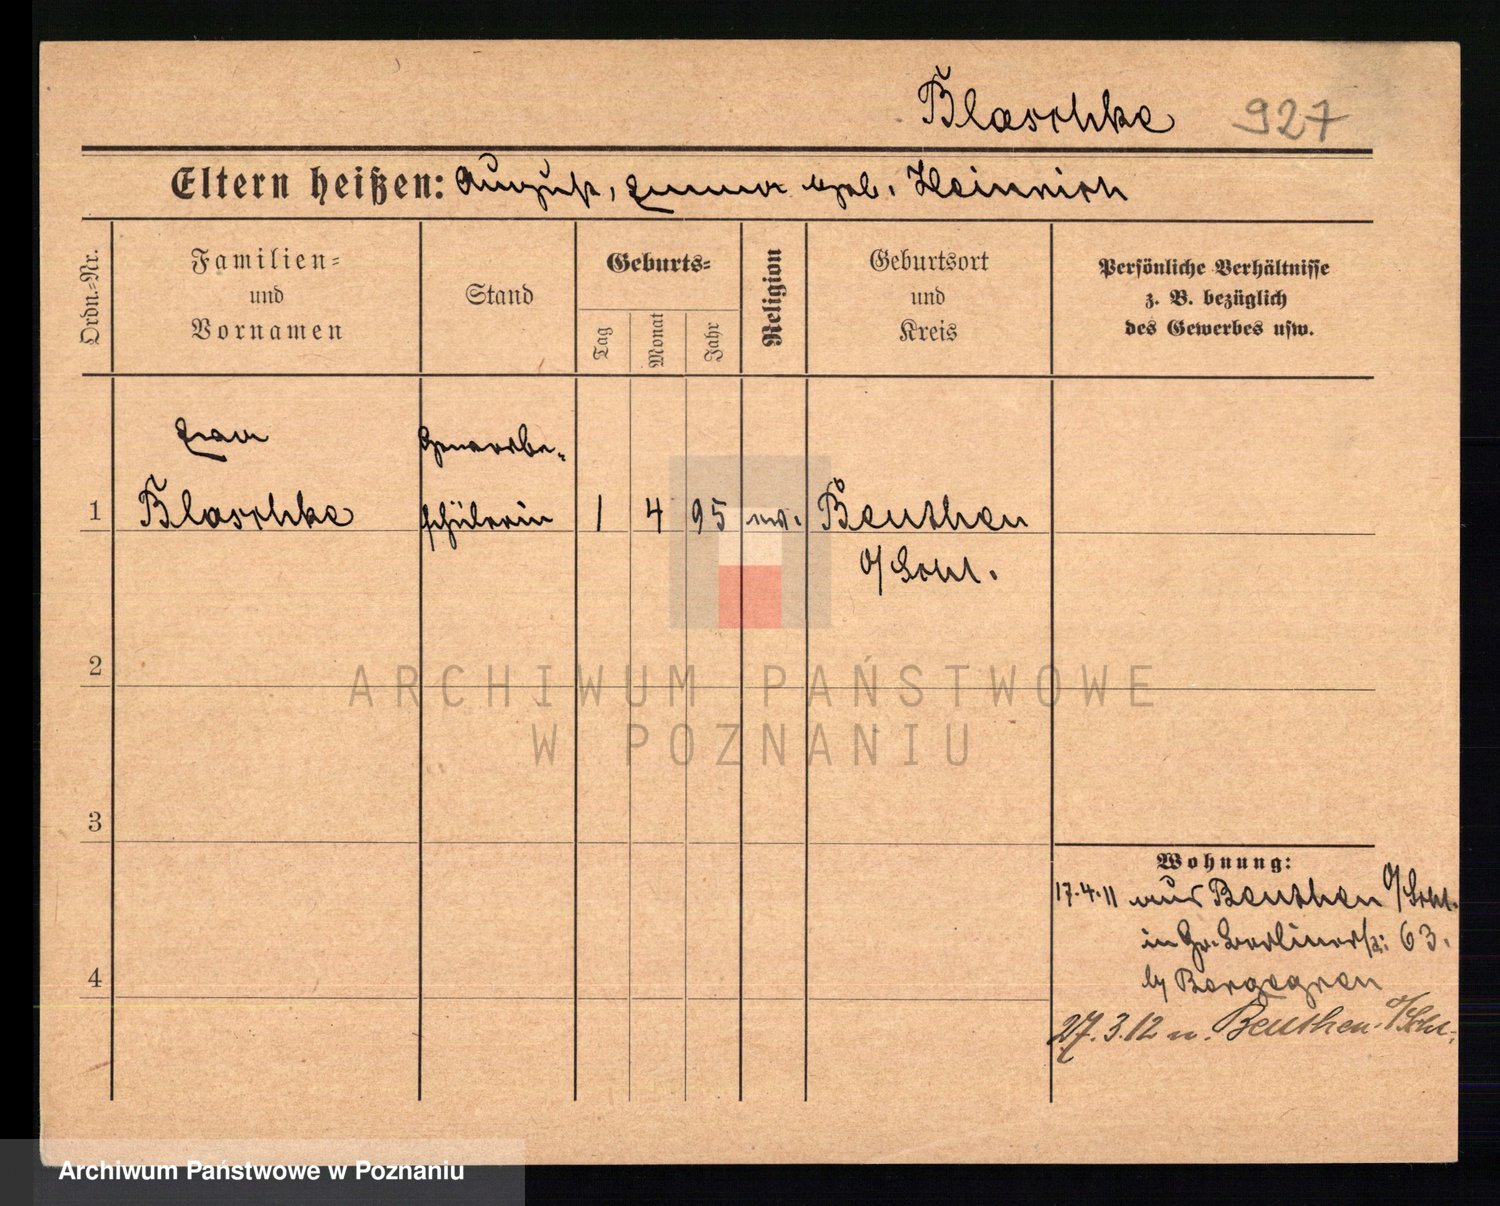 Blaschke 927
Eltern heißen: August, Emma geb. Heinrich
Ordn.-Nr.
Familien-
und
Vornamen
Stand
Geburts-
Tag
Monat
Jahr
Religion
Geburtsort
und
Kreis
Persönliche Verhältnisse
z. B. bezüglich
des Gewerbes usw.
Gewerbe-
1 Blaschke schülerin 1 4 95 Beuthen
O/Schl.
2
ARCHIWUM PAŃSTWOWE
W POZNANIU
3
Wohnung:
17.4.11 aus Beuthen O/Schl.
in Gr. Berlinerstr: 63.
4
27.3.12 n. Beuthen O/Schl.
Archiwum Państwowe w Poznaniu